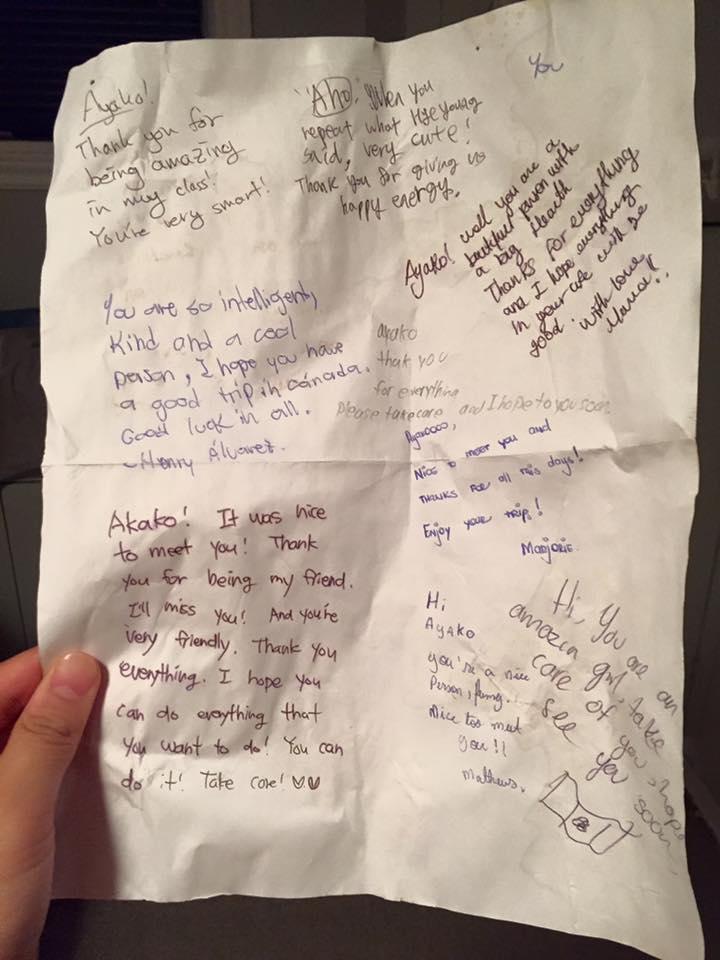 Ayako!
Thank you for
being amazing
in my class!
You're very smart!
"Aho." When you
repeat what Hyeyoung
said, very cute!
Thank you for giving us
happy energy.
You
Ayako! well you are a
person with
a big Hearth
Thanks for everything
and I hope everything
in your life with be
good. with love,
You are so intelligent,
Kind and a cool
person, I hope you have
a good trip in cánada.
Good luck in all.
-Henry Álvarez.
ayako
thak you
for everything
please take care and I hope to you soon
Ayaoooo,
Nice to meet you and
THANKS FOR all this days!
Enjoy your trips!
Marjorie.
Akako! It was nice
to meet you! Thank
you for being my friend.
I'll miss you! And you're
very friendly. Thank you
everything. I hope you
can do everything that
you want to do! You can
do it! Take care! ♡♡
Hi
AYAKO
you're a nice
Person, funny.
Nice too meet
you!!
Matheus.
Hi, You are an
amazin girl, take
care of you, hope
see you soon